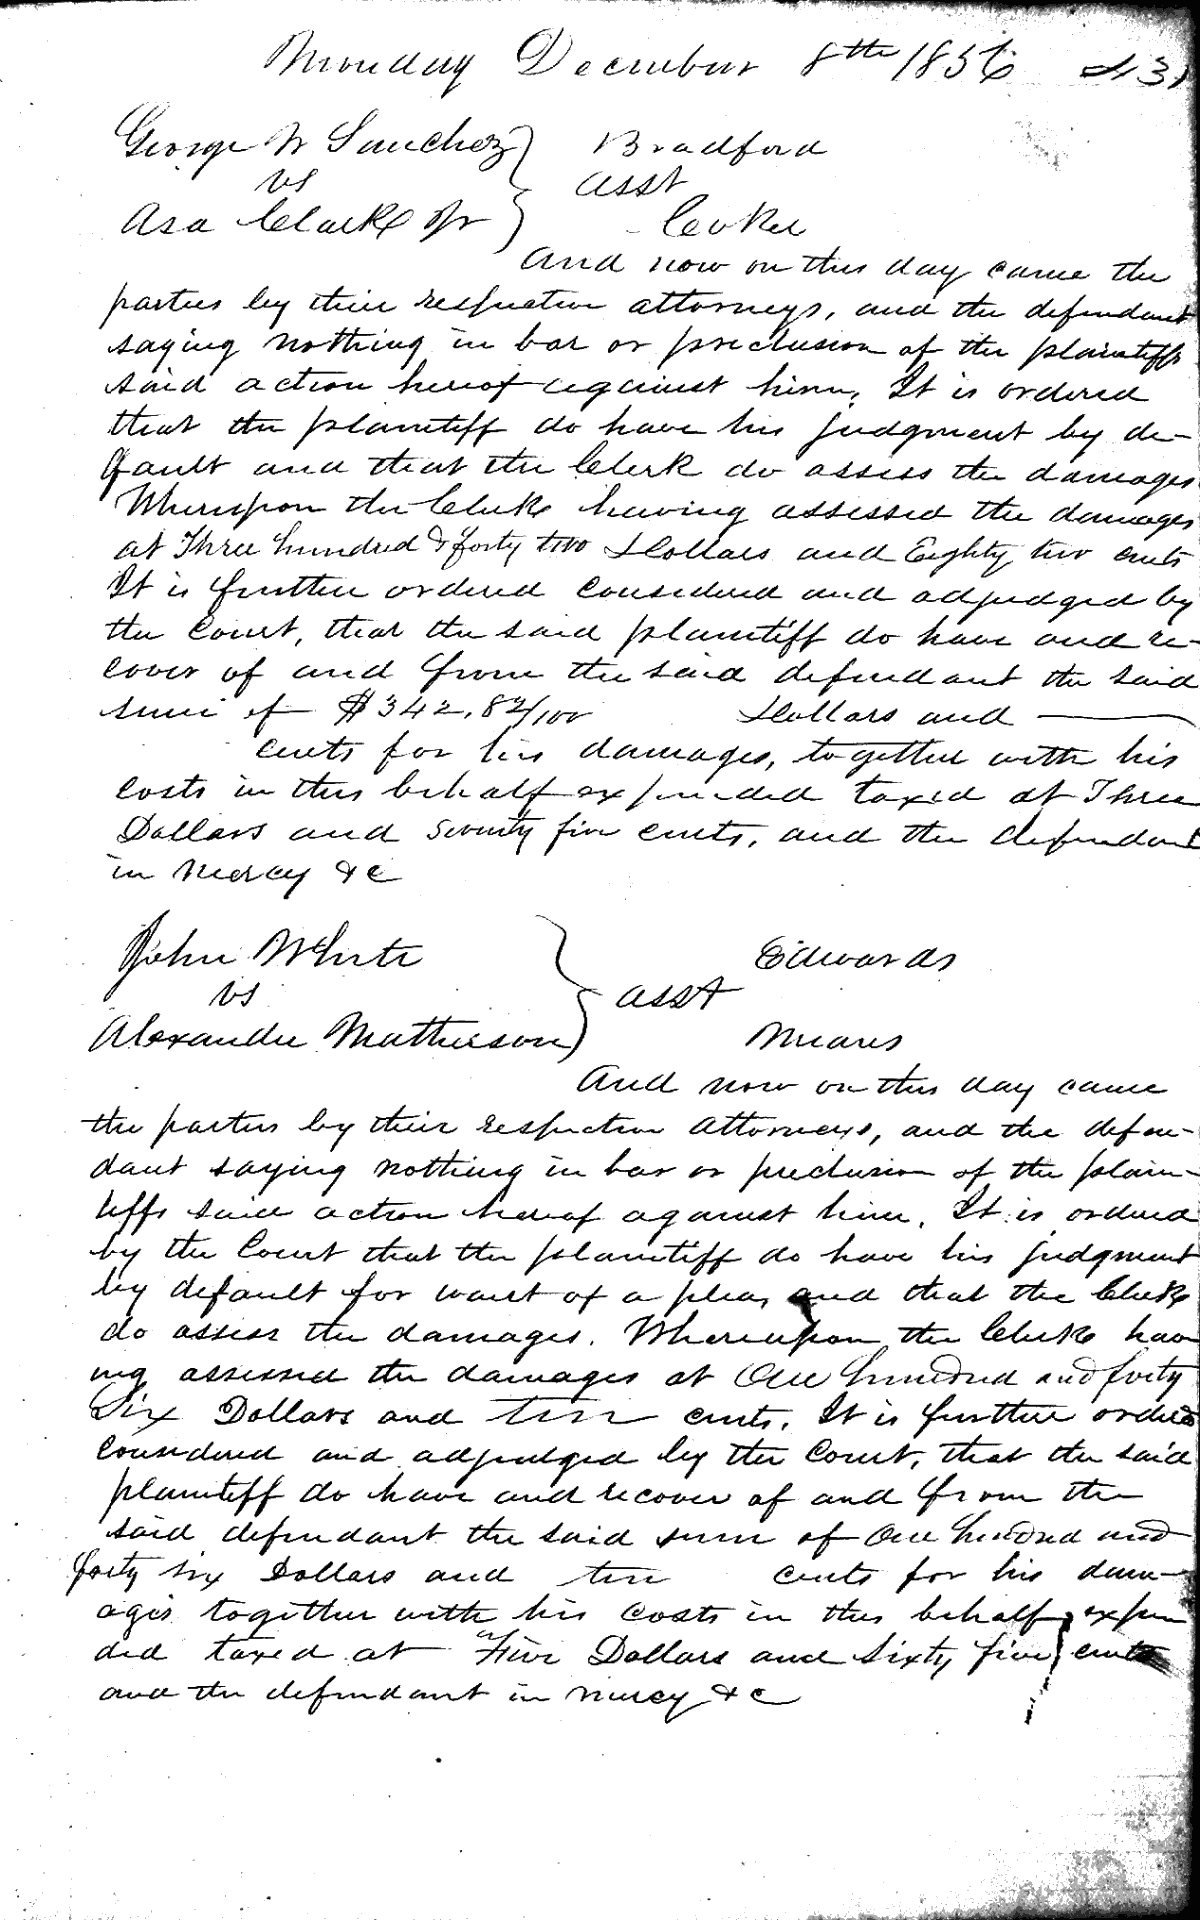 Monday December 8th 1856 431
George W Sanchez Bradford
vs asst
Asa Clark Jr Cocker
And now on this day came the
parties by their respective attorneys, and the defendant
saying nothing in bar or preclusion of the plaintiffs
said action hereof against him. It is ordered
that the plaintiff do have his judgment by de-
fault and that the Clerk do assess the damages
Whereupon the Clerk having assessed the damages
at Three hundred & forty two Dollars and Eighty two cents
It is further ordered considered and adjudged by
the Court, that the said plaintiff do have and re-
cover of and from the said defendant the said
sum of $342.82/100 Dollars and
cents for his damages, together with his
costs in this behalf expended taxed at Three
Dollars and Seventy five cents, and the defendant
in mercy &c
John White Edwards
vs asst
Alexander Mathieson Means
And now on this day came
the parties by their respective attorneys, and the defen-
dant saying nothing in bar or preclusion of the plain-
tiffs said action hereof against him. It is ordered
by the Court that the plaintiff do have his judgment
by default for want of a plea, and that the Clerk
do assess the damages. Whereupon the Clerk hav
ing assessed the damages at One hundred and forty
Six Dollars and ten cents. It is further ordered
considered and adjudged by the Court, that the said
plaintiff do have and recover of and from the
said defendant the said sum of One hundred and
forty six Dollars and ten cents for his dam-
ages together with his costs in this behalf expen
ded taxed at Five Dollars and Sixty five cents
and the defendant in mercy &c